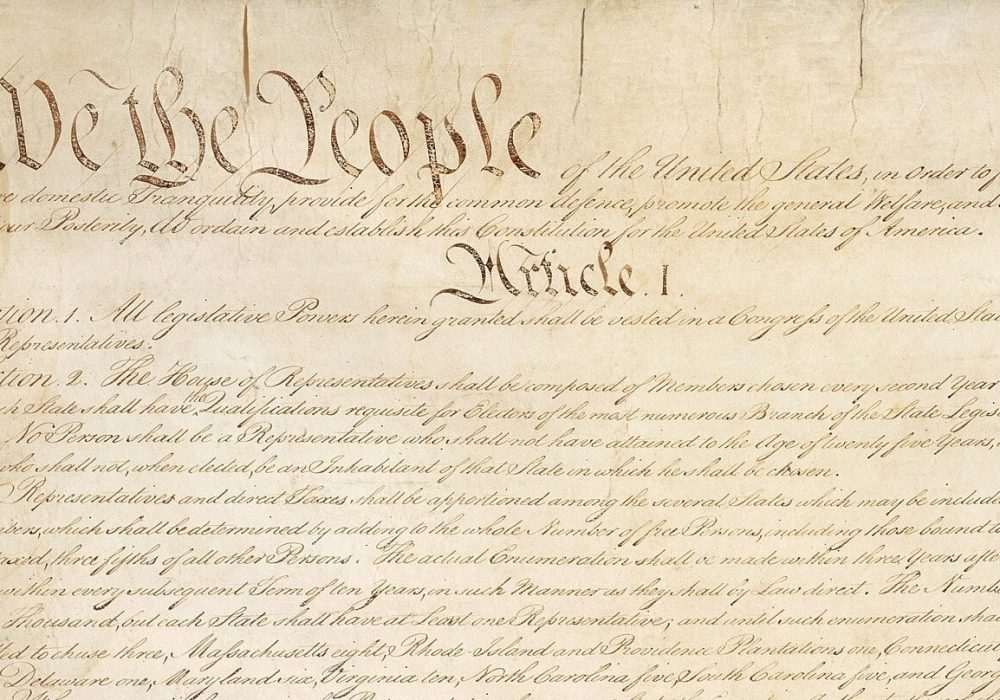 We the People of the United States, in Order to
domestic Tranquility, provide for the common defence, promote the general Welfare, and
our Posterity, do ordain and establish this Constitution for the United States of America.
Article. I.
ction. 1. All legislative Powers herein granted shall be vested in a Congress of the United Sta
Representatives.
ction. 2. The House of Representatives shall be composed of Members chosen every second Year
ch State shall have the Qualifications requisite for Electors of the most numerous Branch of the State Legis
No Person shall be a Representative who shall not have attained to the Age of twenty five Years,
who shall not, when elected, be an Inhabitant of that State in which he shall be chosen.
Representatives and direct Taxes shall be apportioned among the several States which may be include
bers, which shall be determined by adding to the whole Number of free Persons, including those bound to
axed, three fifths of all other Persons. The actual Enumeration shall be made within three Years afte
within every subsequent Term of ten Years, in such Manner as they shall by Law direct. The Numbe
Thousand, but each State shall have at Least one Representative; and until such enumeration shal
tled to chuse three, Massachusetts eight, Rhode-Island and Providence Plantations one, Connecticut
Delaware one, Maryland six, Virginia ten, North Carolina five, South Carolina five, and Georg